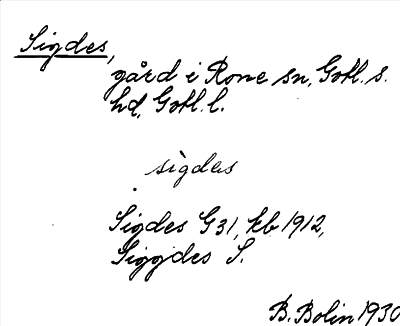 Sigdes,
gård i Rone sn, Gotl. s.
hd, Gotl. l.
sìgdɛs
Sigdes G31, kb 1912,
Siggdes S.
B. Bolin 1930